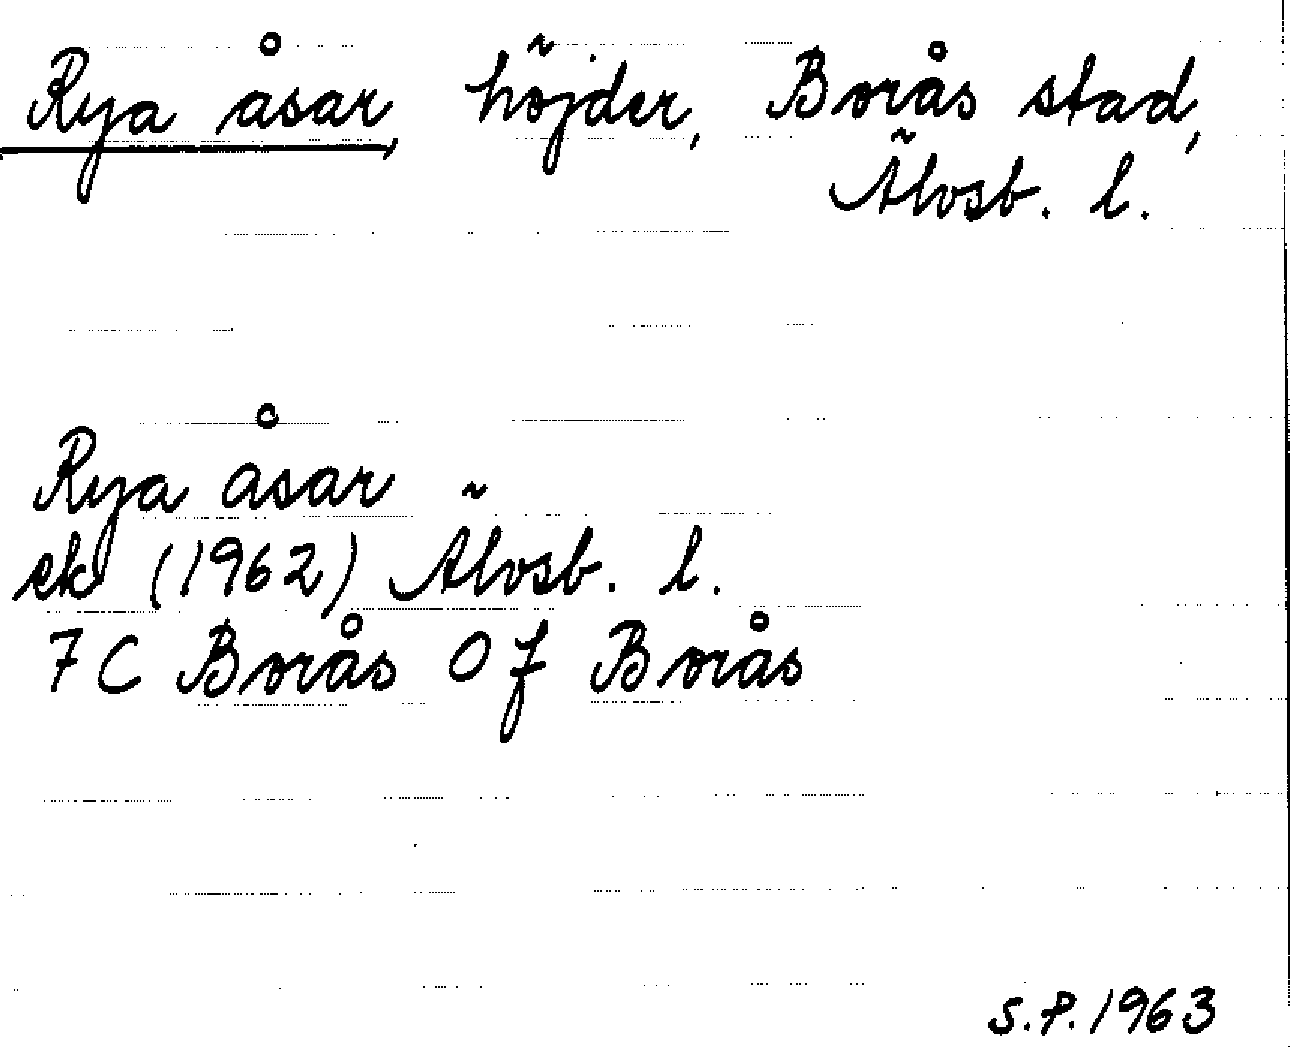 Rya åsar, höjder, Borås stad,
Älvsb. l.
Rya åsar
ek (1962) Älvsb. l.
7C Borås 0f Borås
S.P. 1963